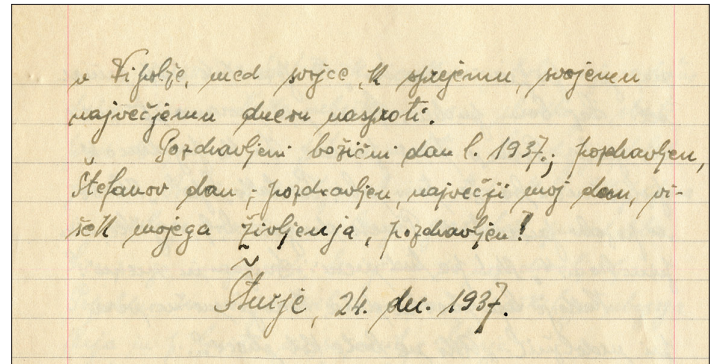 v Vipolže, med svojce, k sprejemu, svojemu
največjemu dnevu nasproti.
Pozdravljeni božični dan l. 1937.; pozdravljen,
Štefanov dan; pozdravljen, največji moj dan, vi-
šek mojega življenja, pozdravljen!
Šturje, 24. dec. 1937.